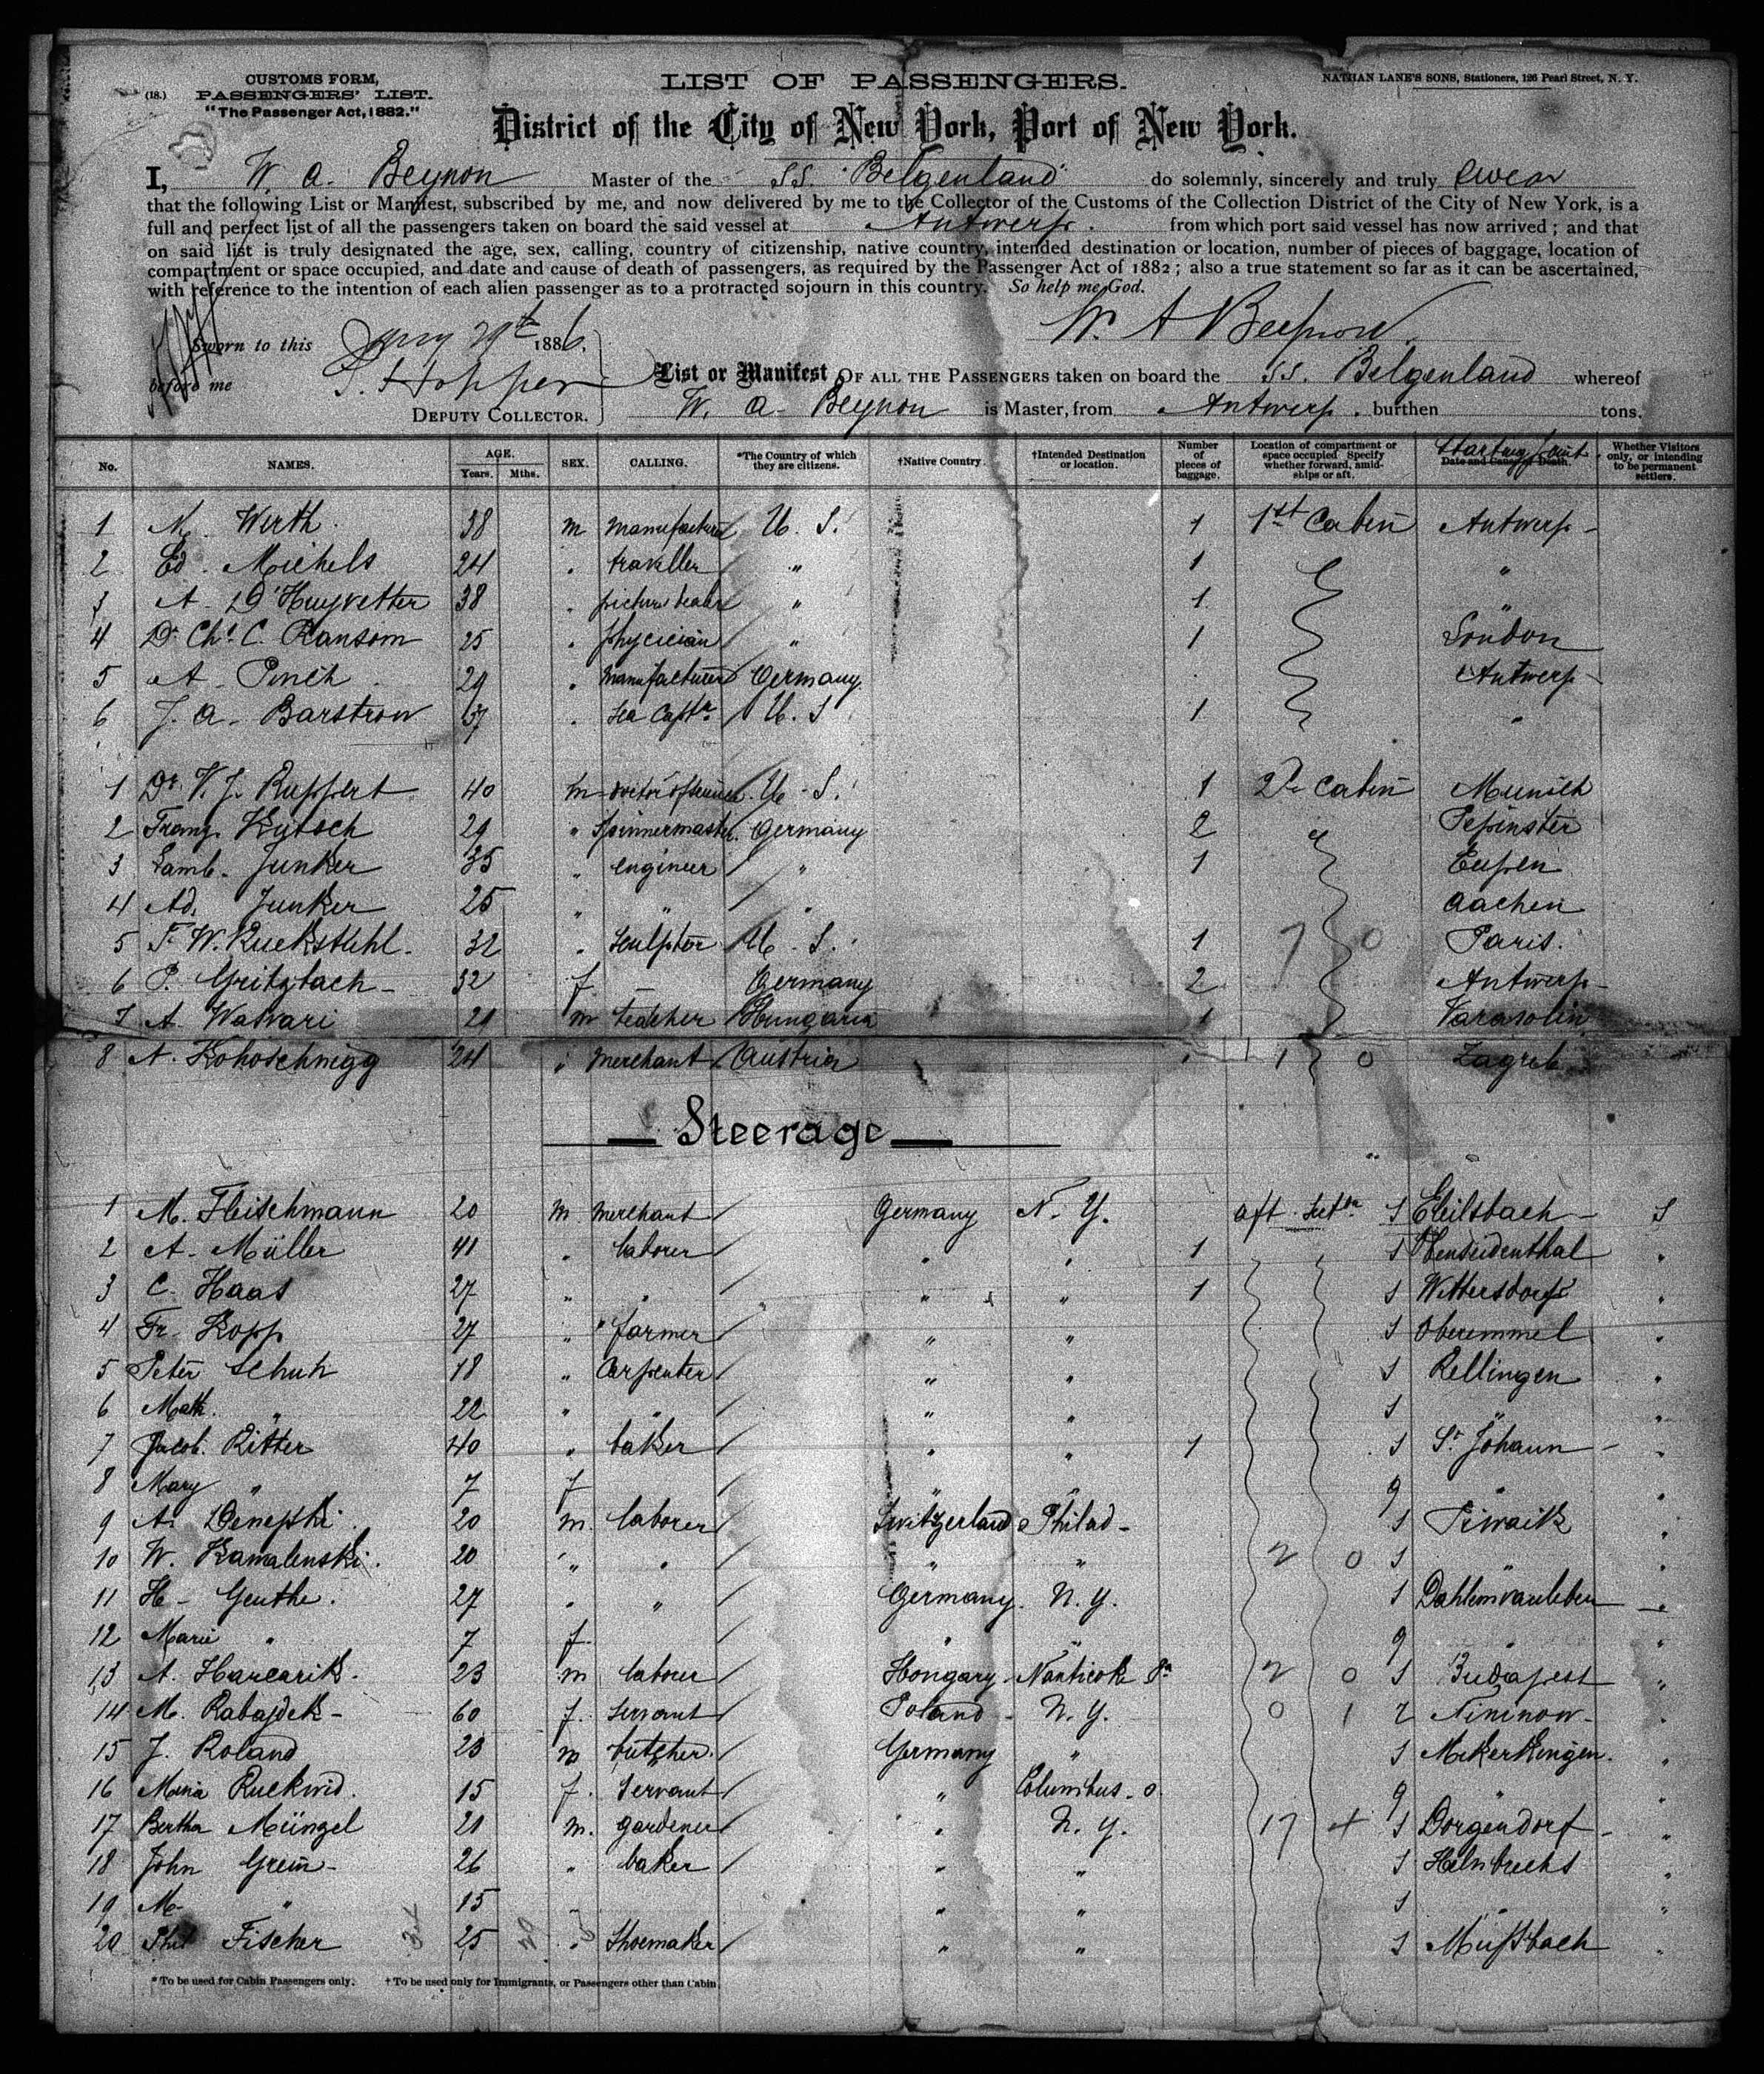 (18.) CUSTOMS FORM,
PASSENGERS' LIST.
"The Passenger Act, 1882."
LIST OF PASSENGERS.
NATHAN LANE'S SONS, Stationers, 126 Pearl Street, N. Y.
District of the City of New York, Port of New York.
I, W. A. Beynon Master of the SS. Belgenland do solemnly, sincerely and truly swear
that the following List or Manifest, subscribed by me, and now delivered by me to the Collector of the Customs of the Collection District of the City of New York, is a
full and perfect list of all the passengers taken on board the said vessel at Antwerp. from which port said vessel has now arrived; and that
on said list is truly designated the age, sex, calling, country of citizenship, native country, intended destination or location, number of pieces of baggage, location of
compartment or space occupied, and date and cause of death of passengers, as required by the Passenger Act of 1882; also a true statement so far as it can be ascertained,
with reference to the intention of each alien passenger as to a protracted sojourn in this country. So help me God.
Sworn to this 1886. W. A Beynon
before me Hopper
DEPUTY COLLECTOR.
List or Manifest OF ALL THE PASSENGERS taken on board the SS. Belgenland whereof
W. A. Beynon is Master, from Antwerp. burthen tons.
No. NAMES. AGE. Years. Mths. SEX. CALLING. *The Country of which they are citizens. †Native Country. †Intended Destination or location. Number of pieces of baggage. Location of compartment or space occupied Specify whether forward, amidships or aft. Starting Point Date and Cause of Death. Whether Visitors only, or intending to be permanent settlers.
1 N. Werth 38 m manufacturer U. S. 1 1st Cabin Antwerp
2 Ed. Michels 24 " traveller " 1 "
3 A. D'Huyvetter 38 " picture dealer " 1 "
4 Dr Chs. C. Ransom 25 " physician " 1 London
5 A. 29 " manufacturer Germany Antwerp
6 J. A. Barstrow 37 " Sea Captn. U. S 1 "
1 Dr. V. J. Ruppert 40 m U. S. 1 2d Cabin Munich
2 Franz Kutsch 29 " Spinnermaster Germany 2 Pepinster
3 Lamb. Junker 35 " engineer " 1 Eupen
4 Ad. Junker 25 " " " Aachen
5 F. W. Ruckstuhl. 32 " Sculptor U. S. 1 7 0 Paris.
6 P. Gritzbach 32 f — Germany 2 Antwerp
7 A. Wasvari 21 m teacher Hungaria 1
8 A. Kohoschnigg 24 " merchant Austria 1 0 Zagreb
Steerage
1 M. Fleischmann 20 m. merchant Germany N. Y. aft S S
2 A. Müller 41 " laborer " " 1 S "
3 C. Haas 27 " " " " 1 S Wittersdorf "
4 Fr. Kopp 27 " farmer " " S Oberemmel "
5 Peter Schuh 18 " Carpenter " " S Rellingen "
6 Math. " 22 " " " " S " "
7 Jacob. Ritter 40 " baker " " 1 S St. Johann "
8 Mary " 7 f " " 9 " "
9 A. 20 m. laborer Switzerland Philad S "
10 W. Kamalenski. 20 " " " " 2 0 S " "
11 H. Genthe. 27 " " Germany. N. Y. S "
12 Marie " 7 f. " " 9 " "
13 A. Harcarik. 23 m laborer Hongary Nanticok Pa 2 0 S Budapest "
14 M. Rabajdek 60 f. Servant Poland N. Y. 0 1 2 "
15 J. Roland 23 m butcher. Germany " S "
16 Maria 15 f. Servant " Columbus. O. 9 " "
17 Bertha Müngel 21 m. gardener " N. Y. 17 4 S Dorgendorf "
18 John Grein 26 " baker " " S Helmbrechts "
19 M. " 15 " " " S " "
20 Phil Fischer 25 " Shoemaker " " S Mußbach "
* To be used for Cabin Passengers only. † To be used only for Immigrants, or Passengers other than Cabin.